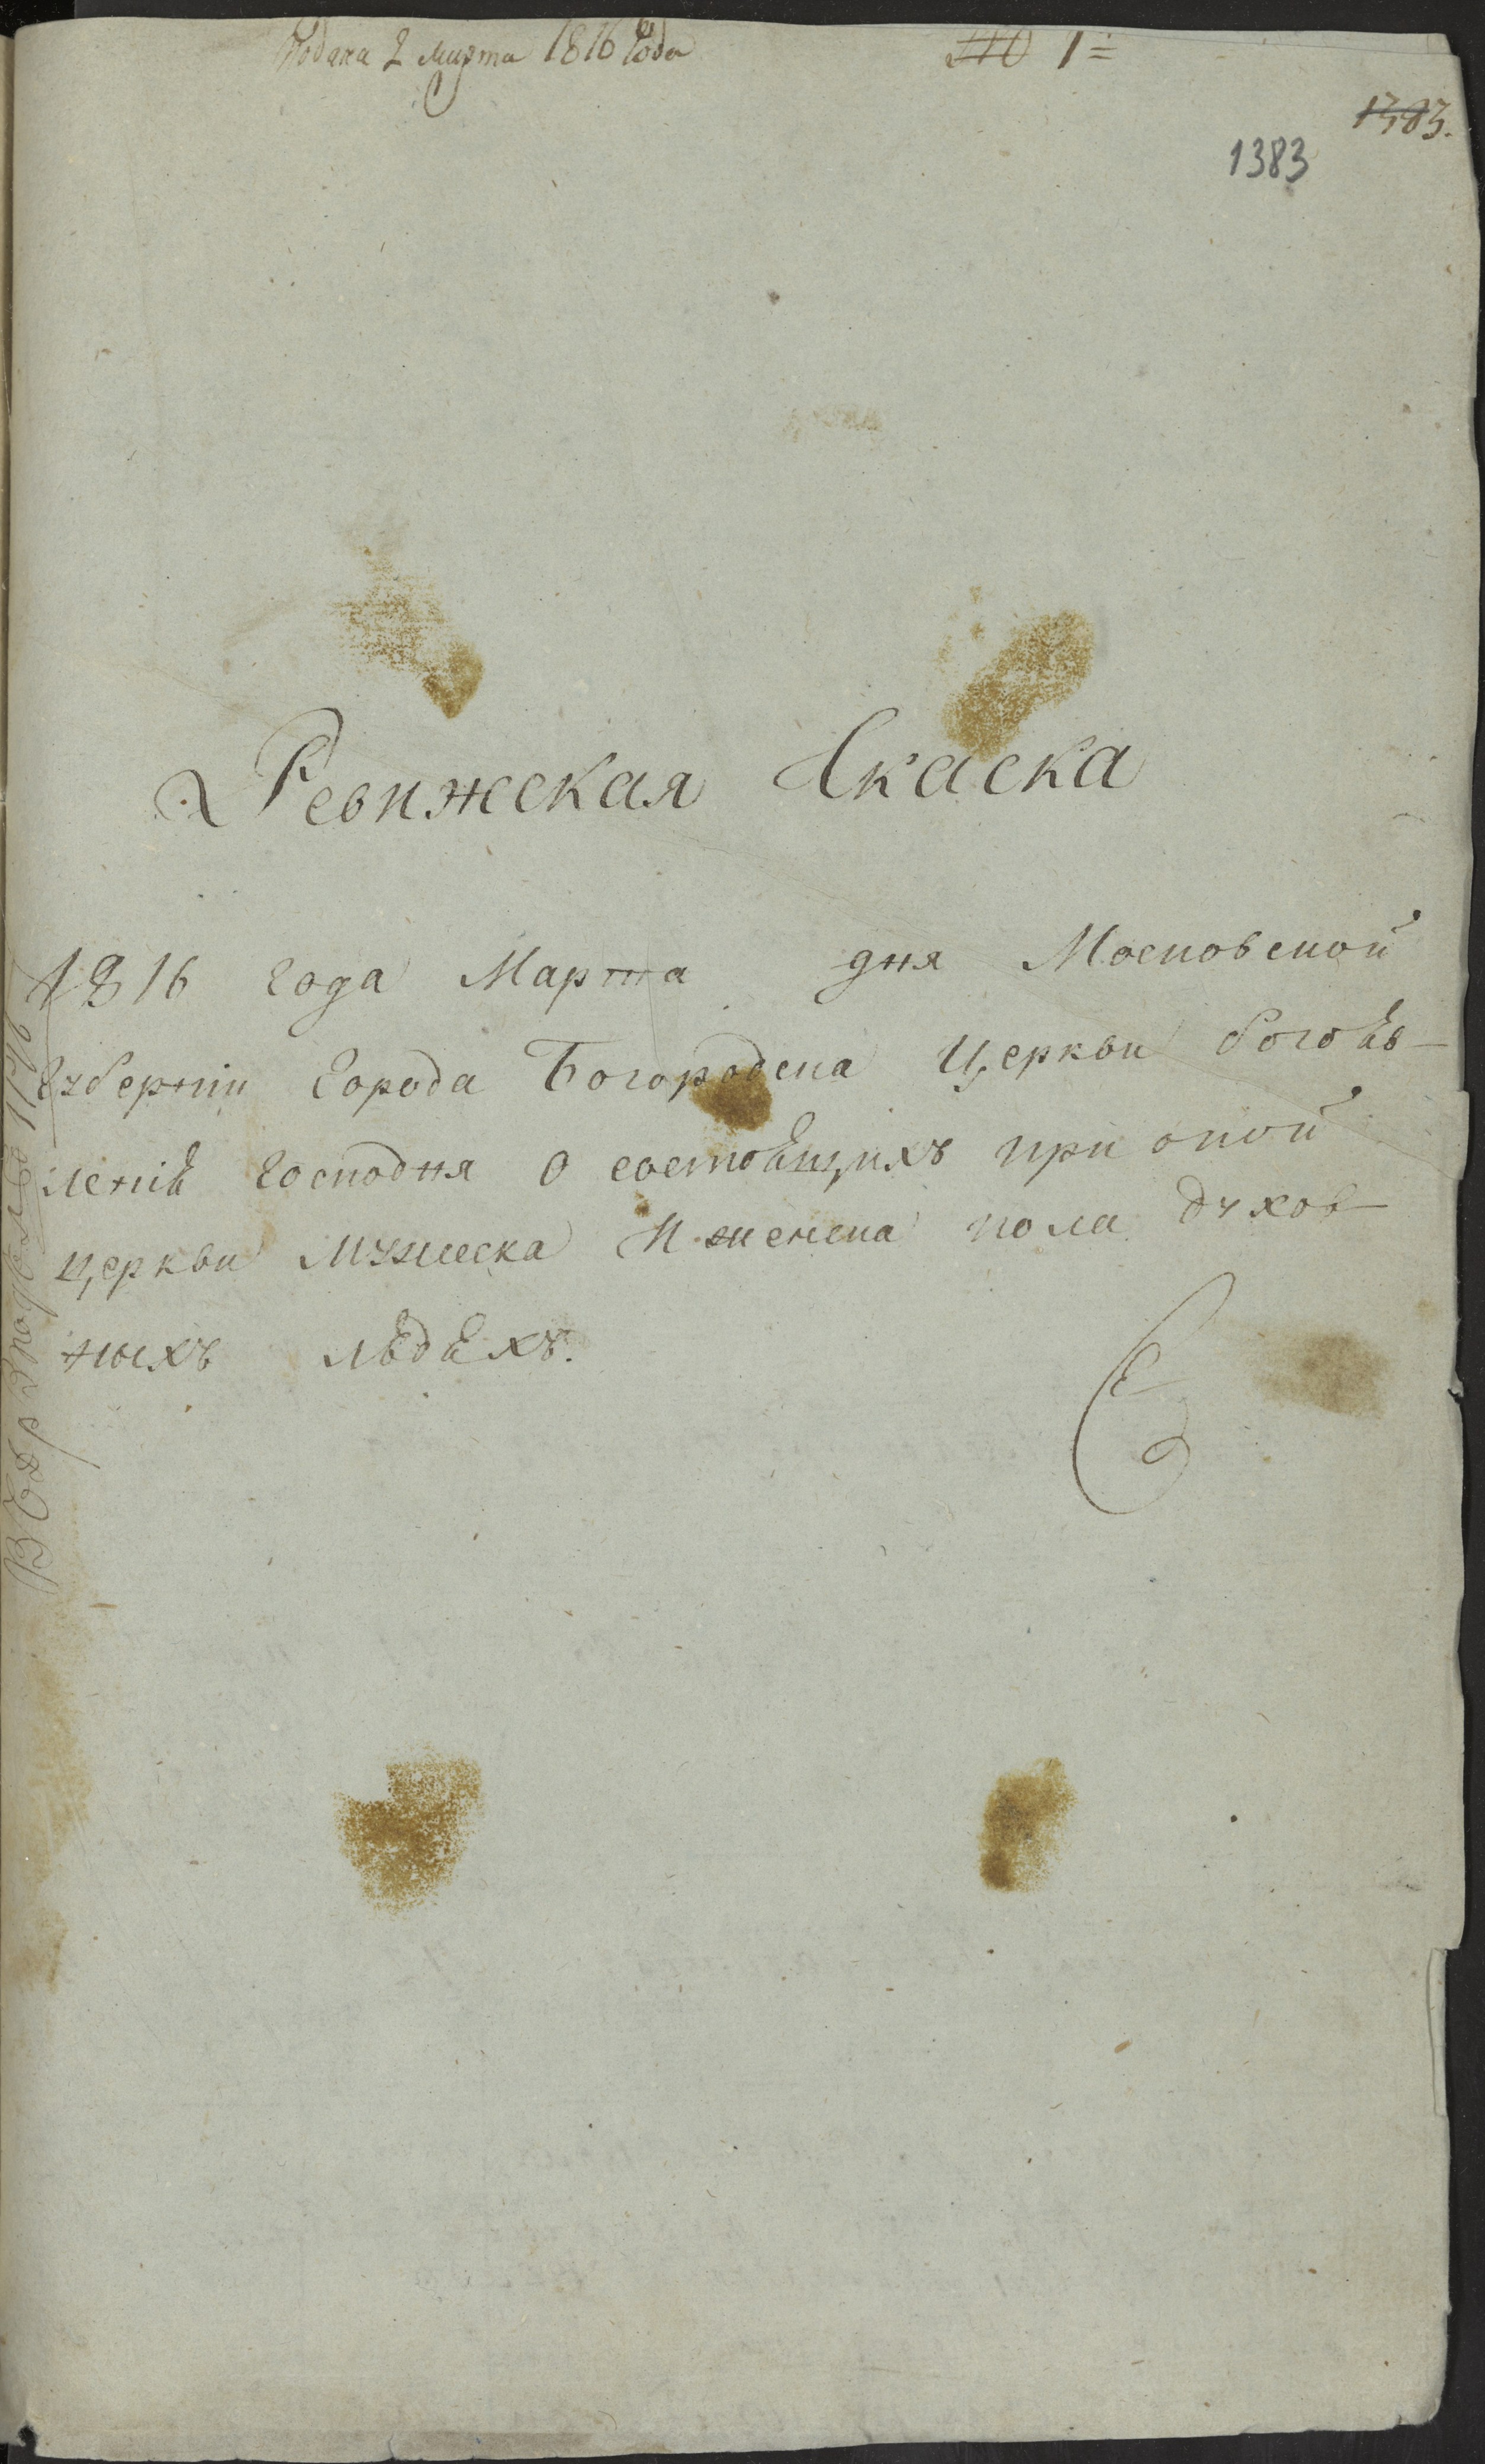 Подана 2 марта 1816 Года
1=
1383.
1383
Ревижская Скаска
1816 года Марта дня Московской
губерніи города Богородска Церкви богояв-
ленія господня о состоящихъ при оной
церкви мужеска И женска пола духов-
ныхъ людяхъ.